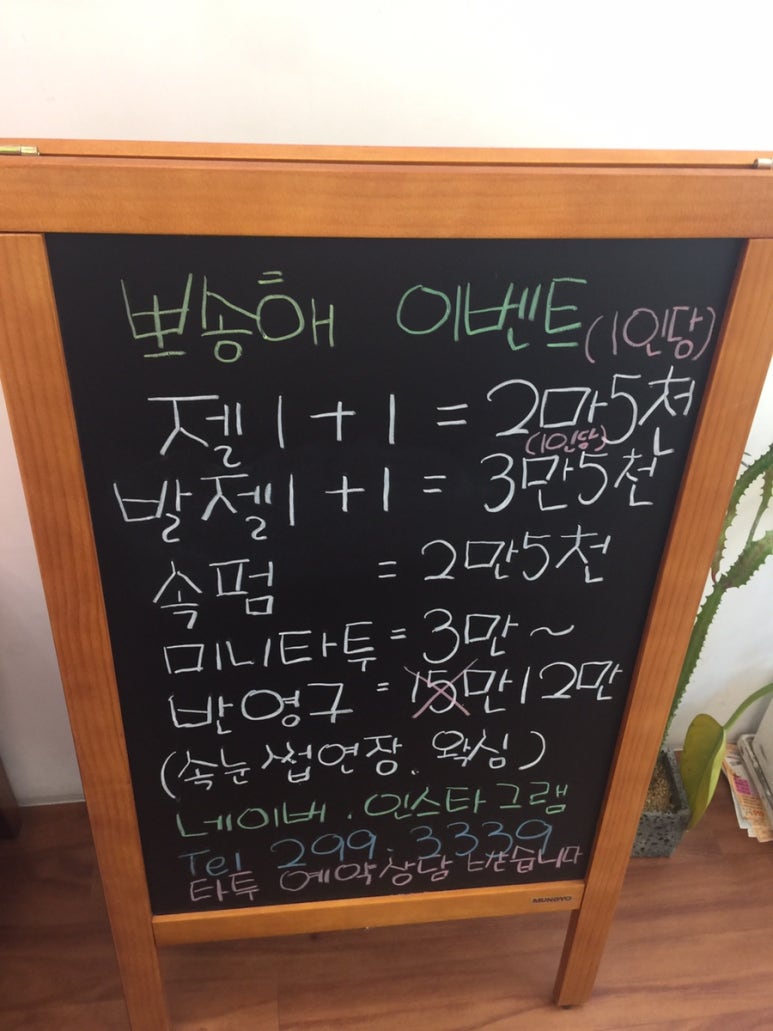 뽀송해 이벤트 (1인당)
젤 1 + 1 = 2만5천
(1인당)
발젤 1 + 1 = 3만5천
속펌 = 2만5천
미니타투 = 3만 ~
반영구 = 15만 12만
(속눈썹연장. 왁싱)
네이버 . 인스타그램
Tel 299. 3339
타투 예약상담 받습니다
MUNGYO